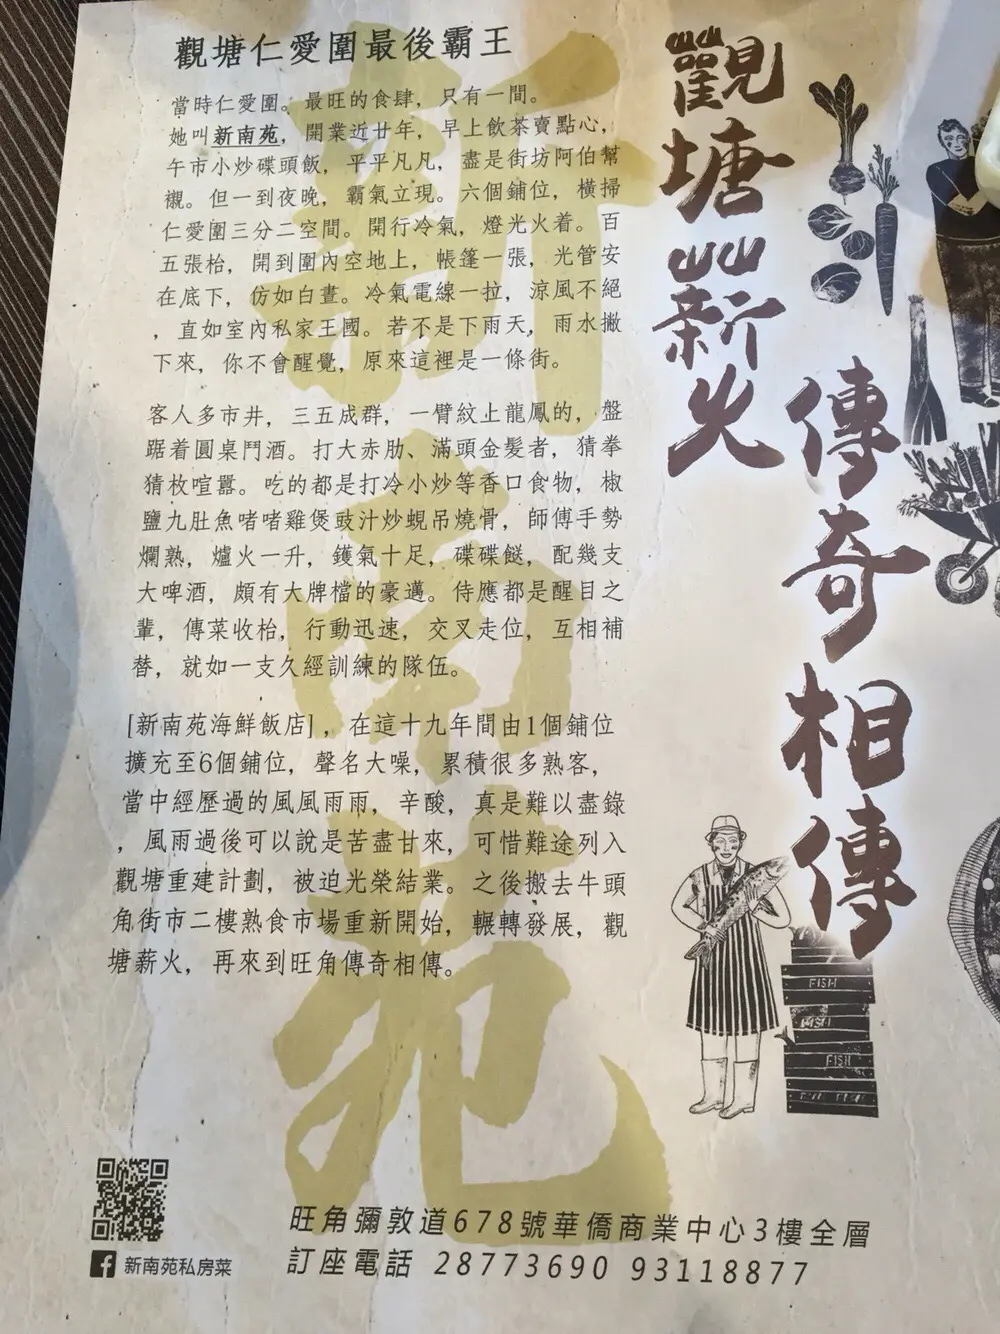 觀塘仁愛圍最後霸王
當時仁愛圍。最旺的食肆，只有一間。
她叫新南苑，開業近廿年，早上飲茶賣點心，
午市小炒碟頭飯，平平凡凡，盡是街坊阿伯幫
襯。但一到夜晚，霸氣立現。六個鋪位，橫掃
仁愛圍三分二空間。開行冷氣，燈光火着。百
五張枱，開到圍內空地上，帳篷一張，光管安
在底下，仿如白晝。冷氣電線一拉，涼風不絕
，直如室內私家王國。若不是下雨天，雨水撇
下來，你不會醒覺，原來這裡是一條街。
客人多市井，三五成群，一臂紋上龍鳳的，盤
踞着圓桌鬥酒。打大赤肋、滿頭金髮者，猜拳
猜枚喧囂。吃的都是打冷小炒等香口食物，椒
鹽九肚魚啫啫雞煲豉汁炒蜆吊燒骨，師傅手勢
爛熟，爐火一升，鑊氣十足，碟碟餸，配幾支
大啤酒，頗有大牌檔的豪邁。侍應都是醒目之
輩，傳菜收枱，行動迅速，交叉走位，互相補
替，就如一支久經訓練的隊伍。
[新南苑海鮮飯店]，在這十九年間由1個鋪位
擴充至6個鋪位，聲名大噪，累積很多熟客，
當中經歷過的風風雨雨，辛酸，真是難以盡錄
，風雨過後可以說是苦盡甘來，可惜難途列入
觀塘重建計劃，被迫光榮結業。之後搬去牛頭
角街市二樓熟食市場重新開始，輾轉發展，觀
塘薪火，再來到旺角傳奇相傳。
觀塘薪火
傳奇相傳
新南苑
FISH
FISH
FISH
新南苑私房菜
旺角彌敦道678號華僑商業中心3樓全層
訂座電話 28773690 93118877